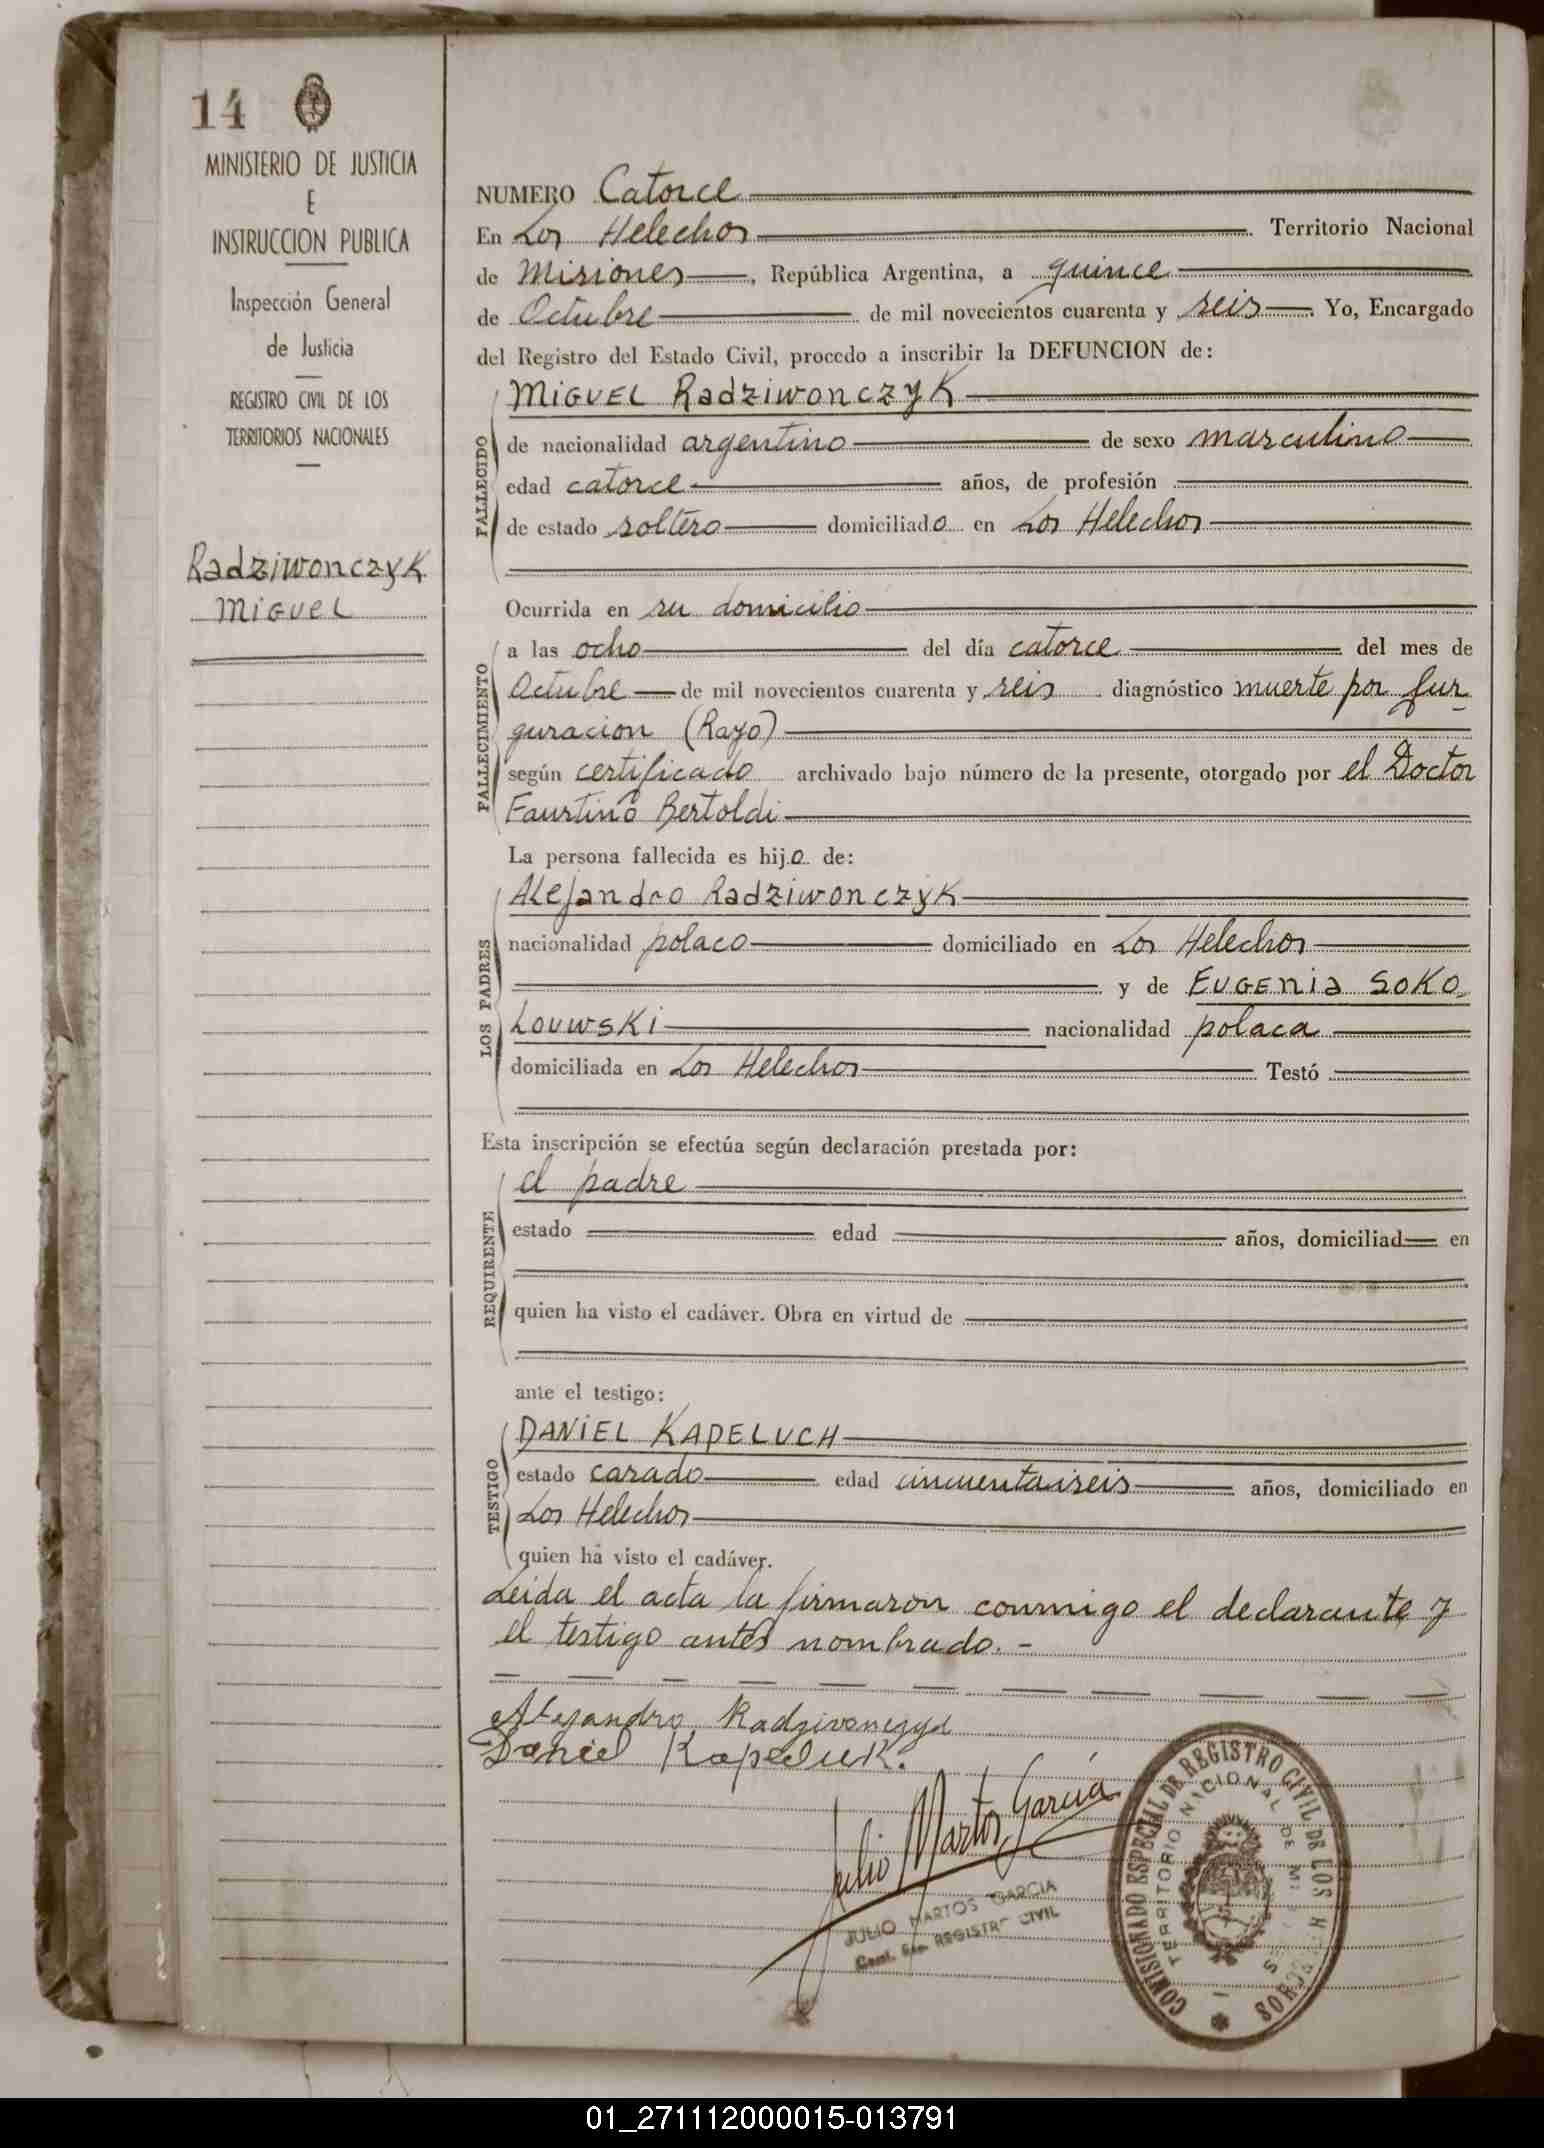 14
MINISTERIO DE JUSTICIA
E
INSTRUCCION PUBLICA
Inspección General
de Justicia
REGISTRO CIVIL DE LOS
TERRITORIOS NACIONALES
Radziwonczyk
Miguel
NUMERO Catorce
En Los Helechos Territorio Nacional
de Misiones, República Argentina, a quince
de Octubre de mil novecientos cuarenta y seis. Yo, Encargado
del Registro del Estado Civil, procedo a inscribir la DEFUNCION de:
Miguel Radziwonczyk
FALLECIDO
de nacionalidad argentino de sexo masculino
edad catorce años, de profesión
de estado soltero domiciliado en Los Helechos
Ocurrida en su domicilio
FALLECIMIENTO
a las ocho del día catorce del mes de
Octubre de mil novecientos cuarenta y seis diagnóstico muerte por fur-
guracion (Rayo)
según certificado archivado bajo número de la presente, otorgado por el Doctor
Faustino Bertoldi
La persona fallecida es hijo de:
LOS PADRES
Alejandro Radziwonczyk
nacionalidad polaco domiciliado en Los Helechos
y de Eugenia Soko-
Louwski nacionalidad polaca
domiciliada en Los Helechos Testó
Esta inscripción se efectúa según declaración prestada por:
REQUIRENTE
el padre
estado edad años, domiciliad en
quien ha visto el cadáver. Obra en virtud de
ante el testigo:
TESTIGO
DANIEL KAPELUCH
estado casado edad cincuentaiseis años, domiciliado en
Los Helechos
quien ha visto el cadáver.
Leida el acta la firmaron conmigo el declarante y
el testigo antes nombrado.-
Alejandro Radzivonczyk
Daniel Kapeluk.
Julio Martos García
JULIO MARTOS GARCIA
REGISTRO CIVIL
COMISIONADO ESPECIAL DE REGISTRO CIVIL DE LOS
TERRITORIO NACIONAL DE
01_271112000015-013791